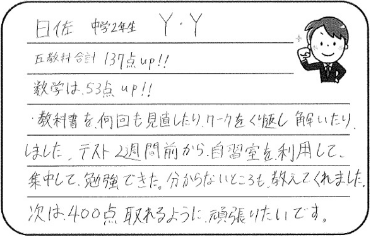 日佐 中学2年生 Y・Y
五教科合計 137点up!!
数学は、53点up!!
・教科書を、何回も見直したり、ワークをくり返し解いたり
しました。テスト2週間前から、自習室を利用して、
集中して、勉強できた。分からないところも、教えてくれました。
次は、400点取れるように、頑張りたいです。